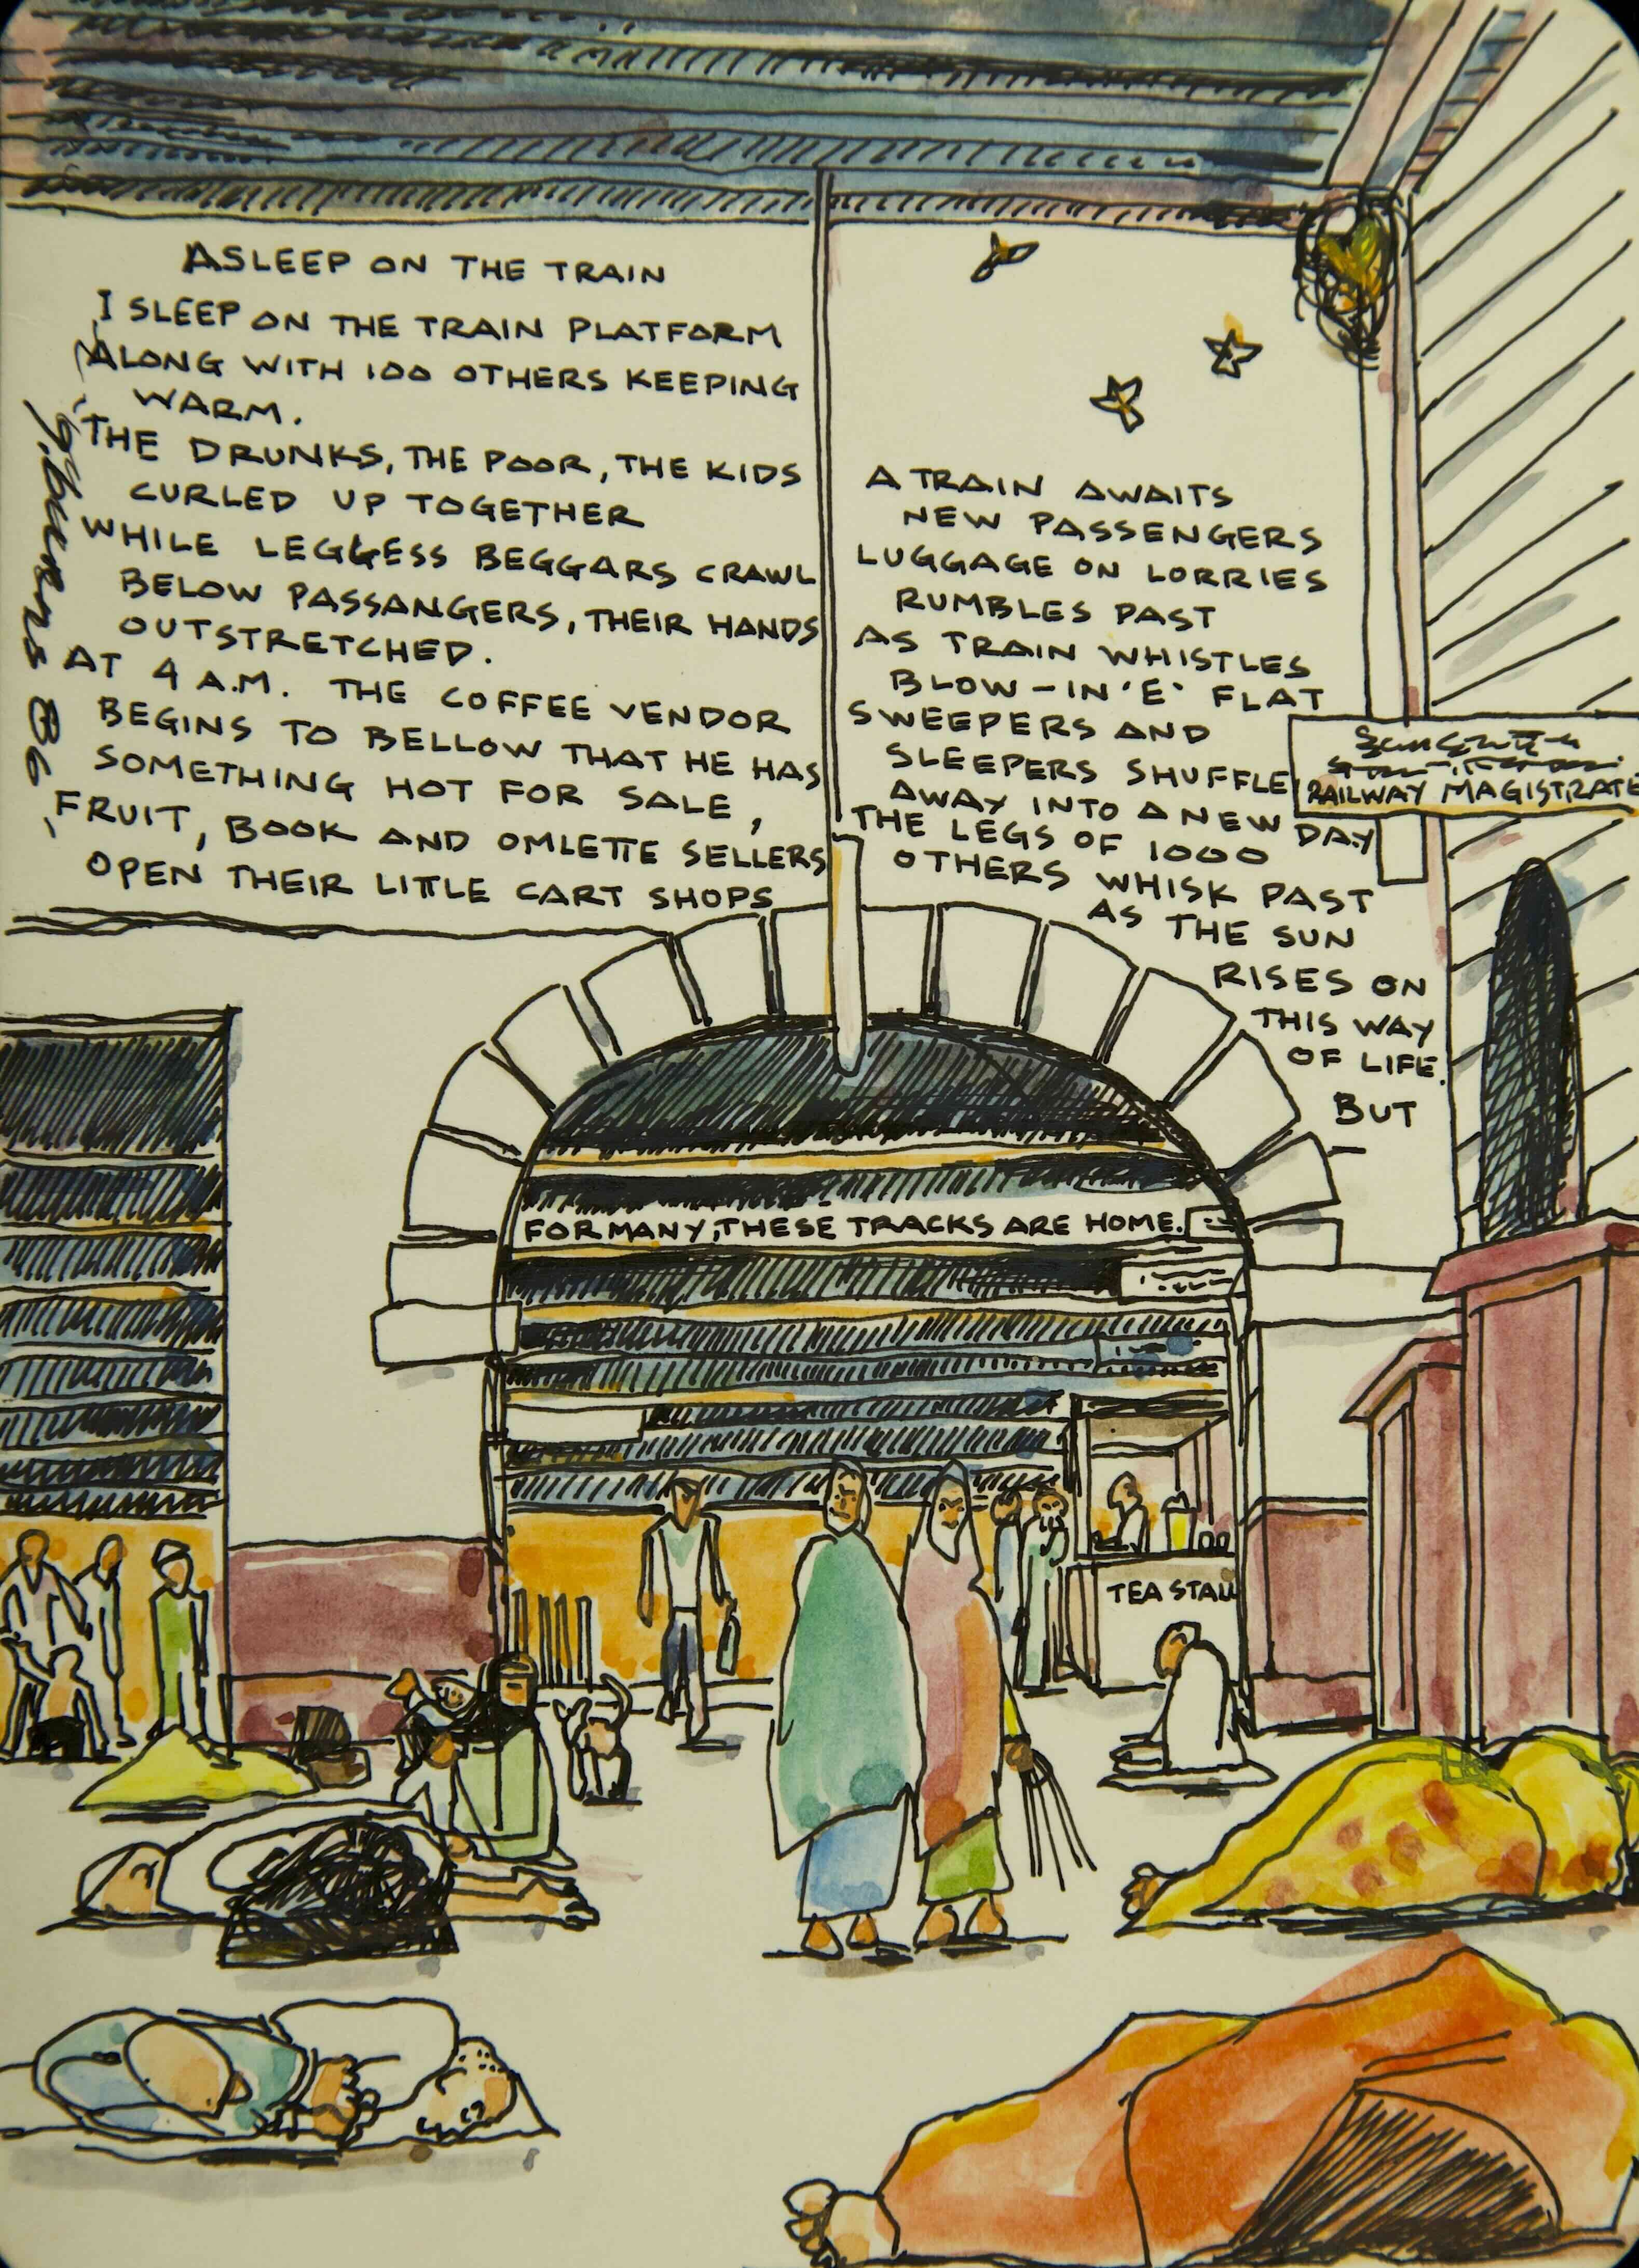 ASLEEP ON THE TRAIN
I SLEEP ON THE TRAIN PLATFORM
ALONG WITH 100 OTHERS KEEPING
WARM.
THE DRUNKS, THE POOR, THE KIDS
CURLED UP TOGETHER
WHILE LEGGLESS BEGGARS CRAWL
BELOW PASSANGERS, THEIR HANDS
OUTSTRETCHED.
AT 4 A.M. THE COFFEE VENDOR
BEGINS TO BELLOW THAT HE HAS
SOMETHING HOT FOR SALE,
FRUIT, BOOK AND OMLETTE SELLERS
OPEN THEIR LITTLE CART SHOPS
A TRAIN AWAITS
NEW PASSENGERS
LUGGAGE ON LORRIES
RUMBLES PAST
AS TRAIN WHISTLES
BLOW - IN 'E' FLAT
SWEEPERS AND
SLEEPERS SHUFFLE
AWAY INTO A NEW DAY
THE LEGS OF 1000
OTHERS WHISK PAST
AS THE SUN
RISES ON
THIS WAY
OF LIFE.
BUT
FOR MANY, THESE TRACKS ARE HOME.
RAILWAY MAGISTRATE
TEA STALL
86